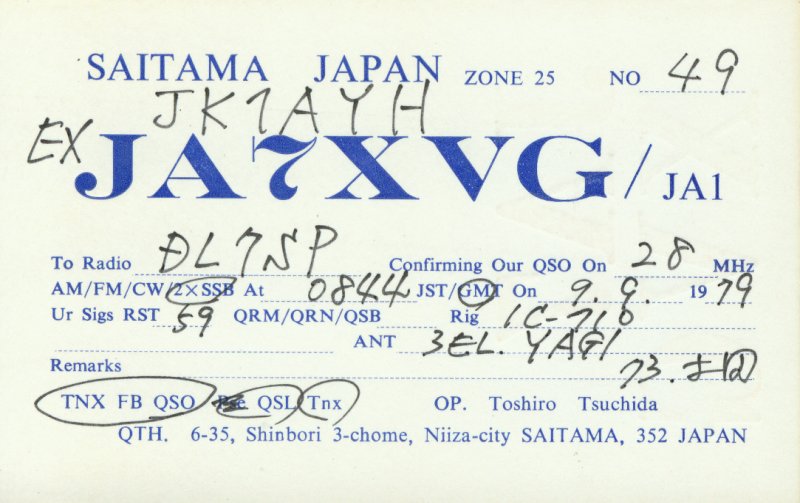 SAITAMA JAPAN ZONE 25 NO 49
JK1AYH
EX JA7XVG/JA1
To Radio DL7SP Confirming Our QSO On 28 MHz
AM/FM/CW/2×SSB At 0844 JST/GMT On 9. 9. 1979
Ur Sigs RST 59 QRM/QRN/QSB Rig IC-710
ANT 3EL. YAGI
Remarks
73.
TNX FB QSO Pse QSL Tnx OP. Toshiro Tsuchida
QTH. 6-35, Shinbori 3-chome, Niiza-city SAITAMA, 352 JAPAN